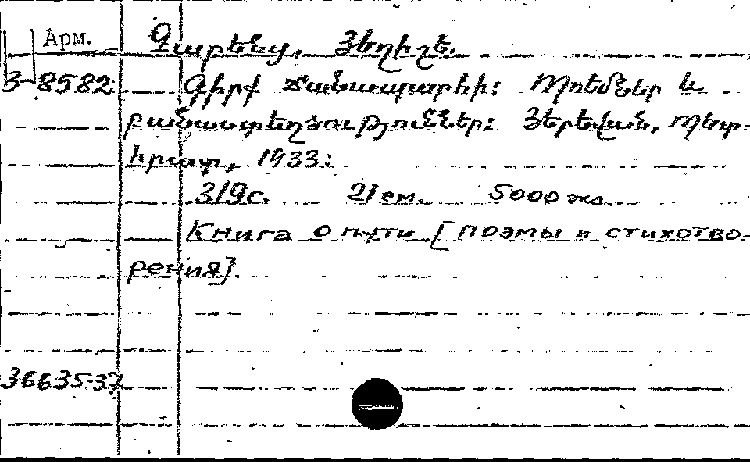 Арм.
Չարենց, Յեղիշե.
3-8582
Գիրք ճանապարհի: Պոեմներ և
բանաստեղծություններ: Յերևան, Պետ-
հրատ, 1933:
319с. 21 см. 5000 жз
Книга о пути [поэмы и стихотво-
рения].
36635-37